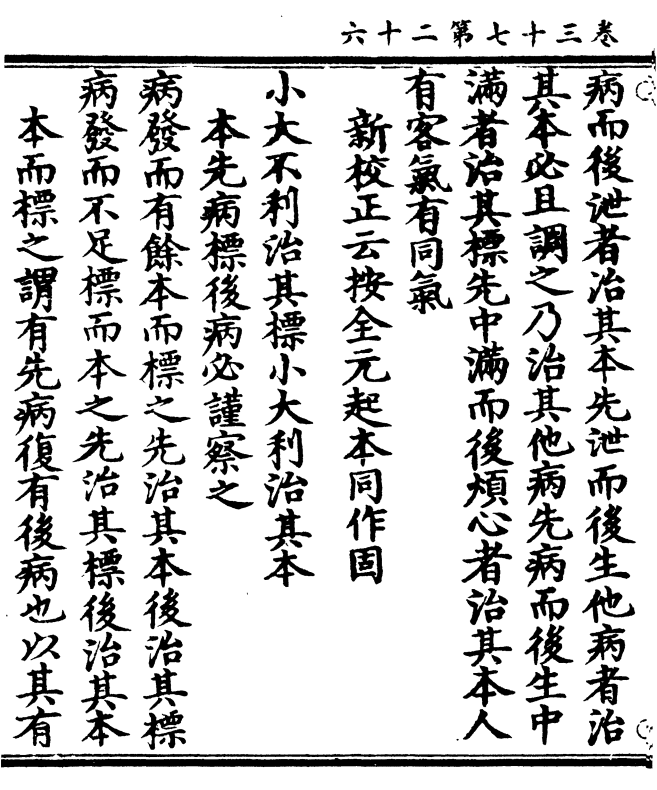 卷三十七第二十六
病而後泄者治其本先泄而後生他病者治
其本必且調之乃治其他病先病而後生中
滿者治其標先中滿而後煩心者治其本人
有客氣有同氣
新校正云按全元起本同作固
小大不利治其標小大利治其本
本先病標後病必謹察之
病發而有餘本而標之先治其本後治其標
病發而不足標而本之先治其標後治其本
本而標之謂有先病復有後病也以其有